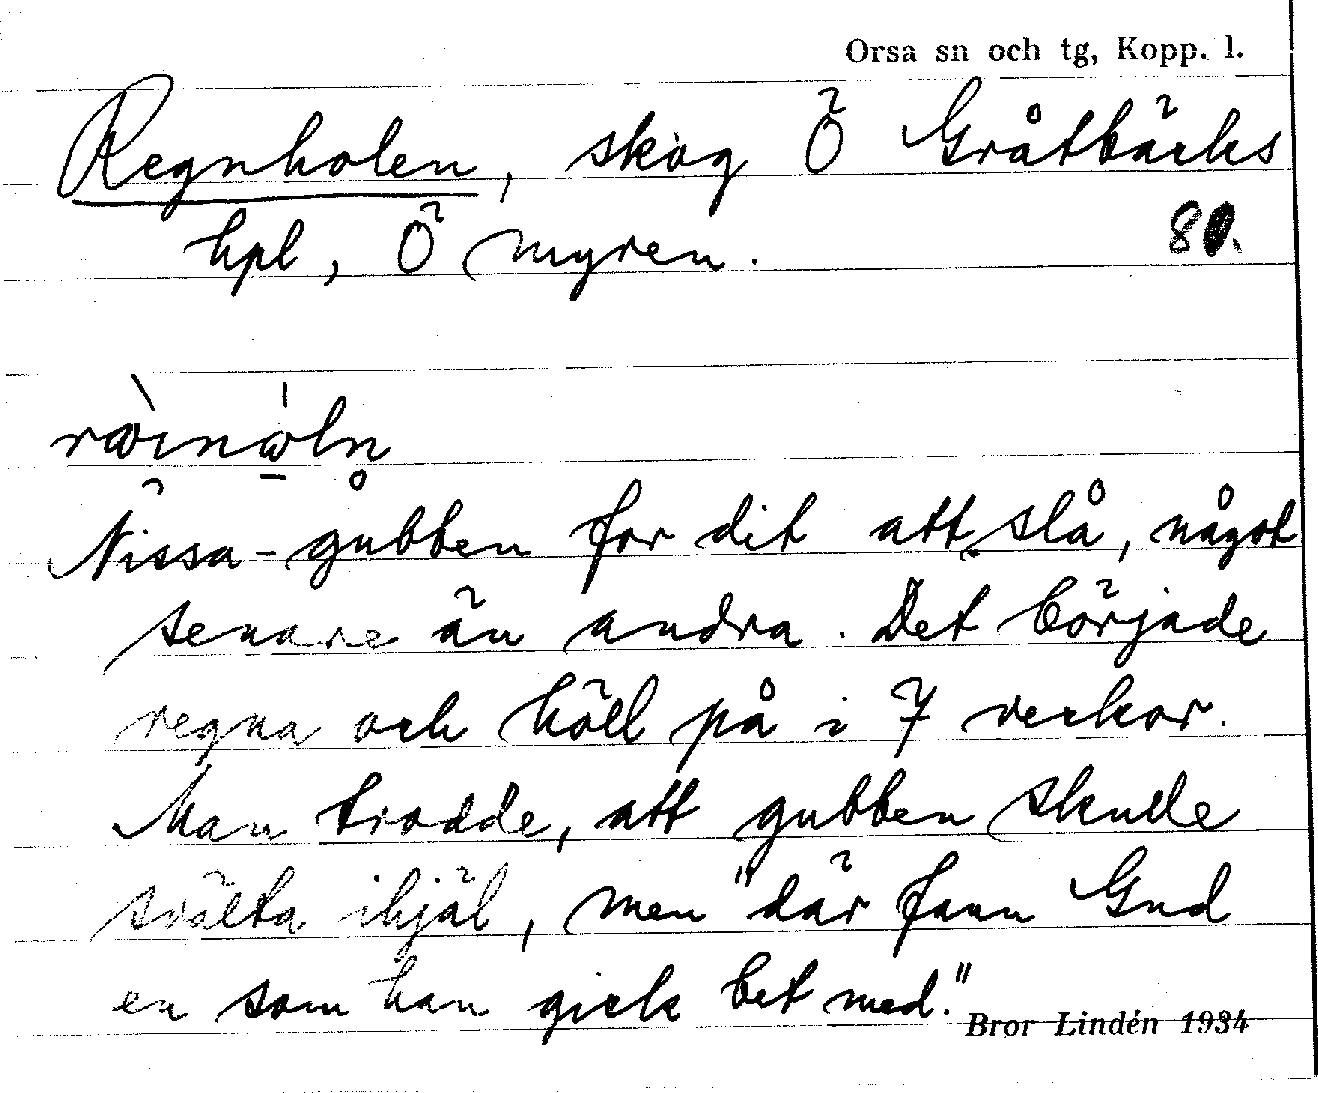 Orsa sn och tg, Kopp. l.
Regnholen, skog Ö Gråtbäcks
hpl, Ö myren. 80.
Nissa-gubben for dit att slå, något
senare än andra. Det började
regna och höll på i 7 veckor.
Man trodde, att gubben skulle
svälta ihjäl, men "där fann Gud
en som han gick bet med."
Bror Lindén 1934